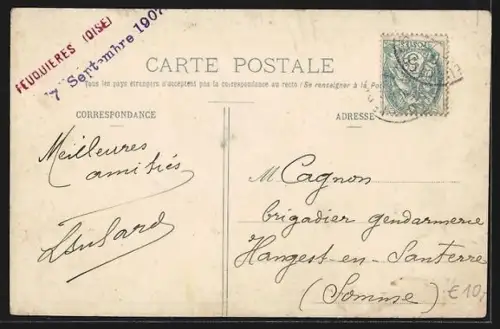 FEUQUIERES (OISE)
7 Septembre 1907
CARTE POSTALE
Tous les pays étrangers n'acceptent pas la correspondance au recto (Se renseigner à la Poste
CORRESPONDANCE
ADRESSE
Meilleures
amitiés
M Cagnon
brigadier gendarmerie
Hangest-en-Santerre
(Somme)
€10,-